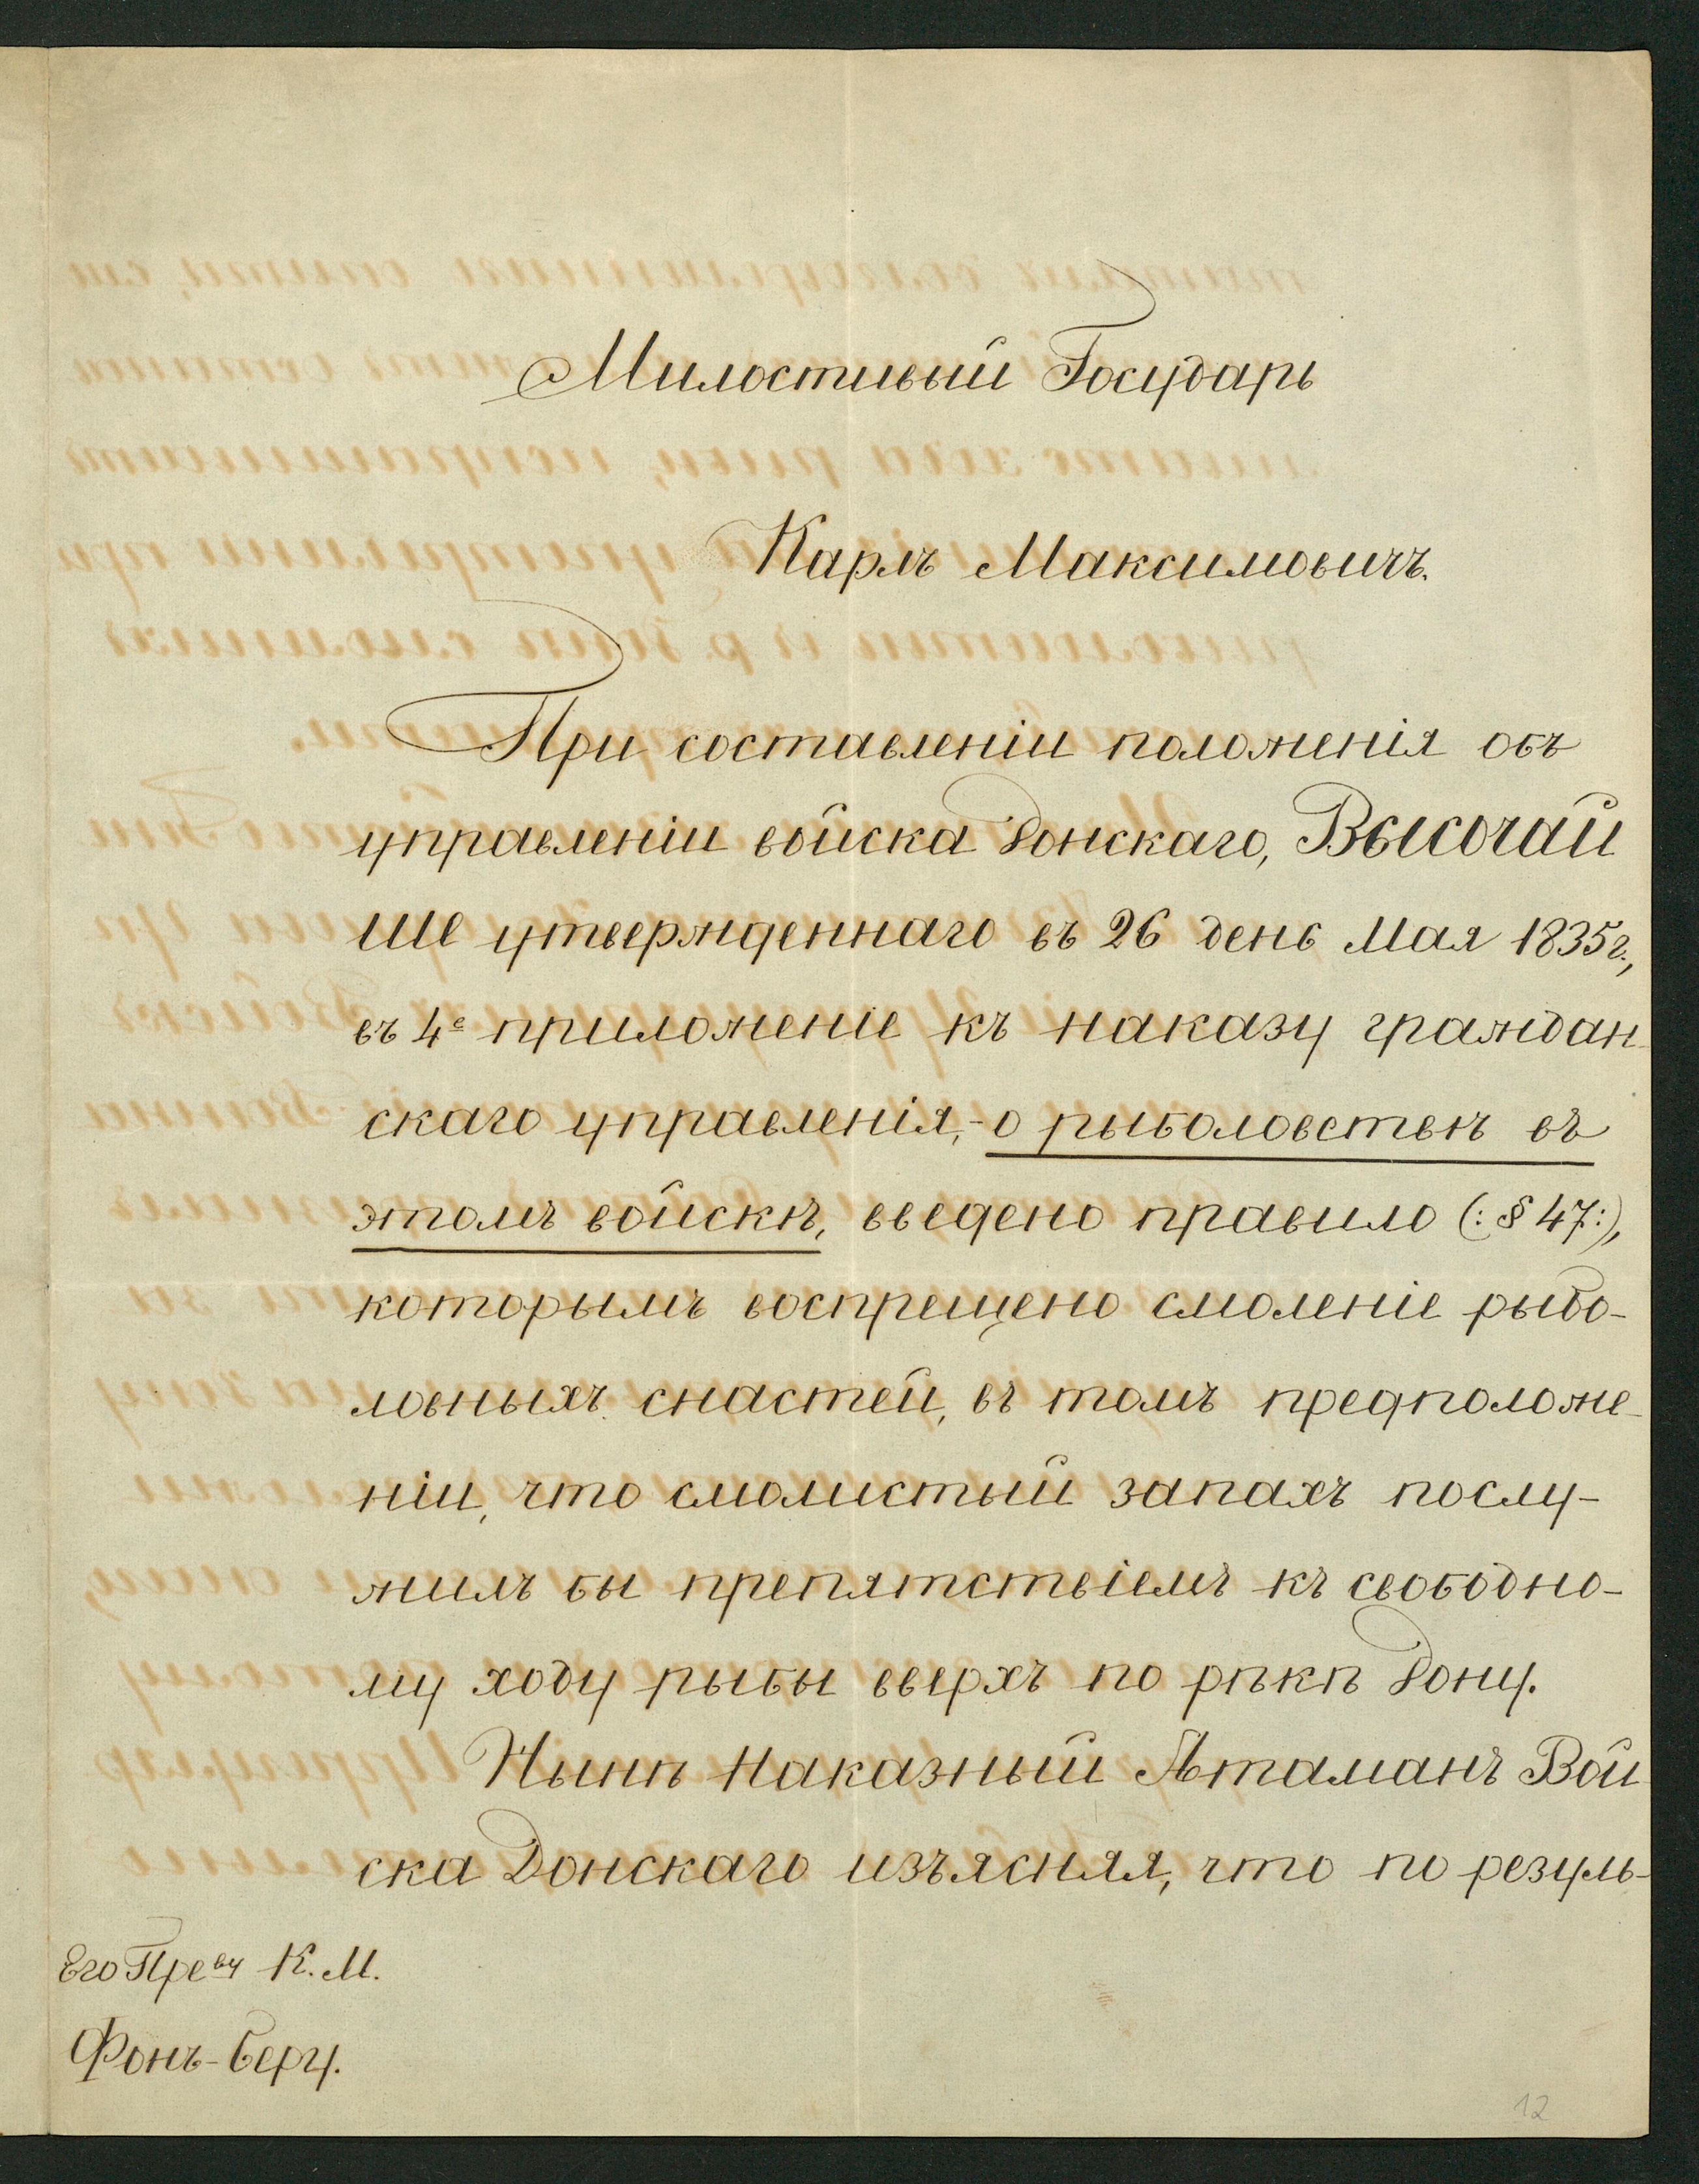 Милостивый Государь
Карлъ Максимовичъ.
При составленіи положенія объ
управленіи войска Донскаго, Высочай
ше утвержденнаго въ 26 день Мая 1835 г.,
въ 4е приложеніе къ наказу граждан-
скаго управленія, - о рыболовствѣ въ
этомъ войскѣ, введено правило (: § 47 :),
которымъ воспрещено смоленіе рыбо-
ловныхъ снастей, въ томъ предположе-
ніи, что смолистый запахъ послу-
жилъ бы препятствіемъ къ свободно-
му ходу рыбы вверхъ по рѣкѣ Дону.
Нынѣ Наказный Атаманъ Вой
ска Донскаго изъясняя, что по резуль-
Его Преву К. М.
Фонъ-Беру.
12